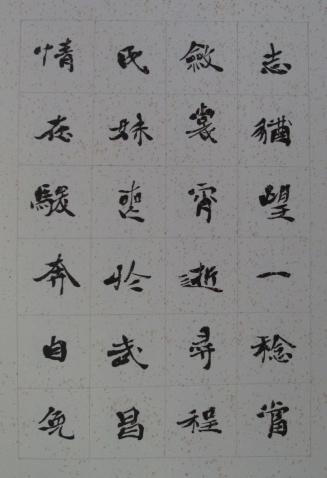 志猶望一稔當
斂裳宵逝尋程
氏妹喪於武昌
情在駿奔自免